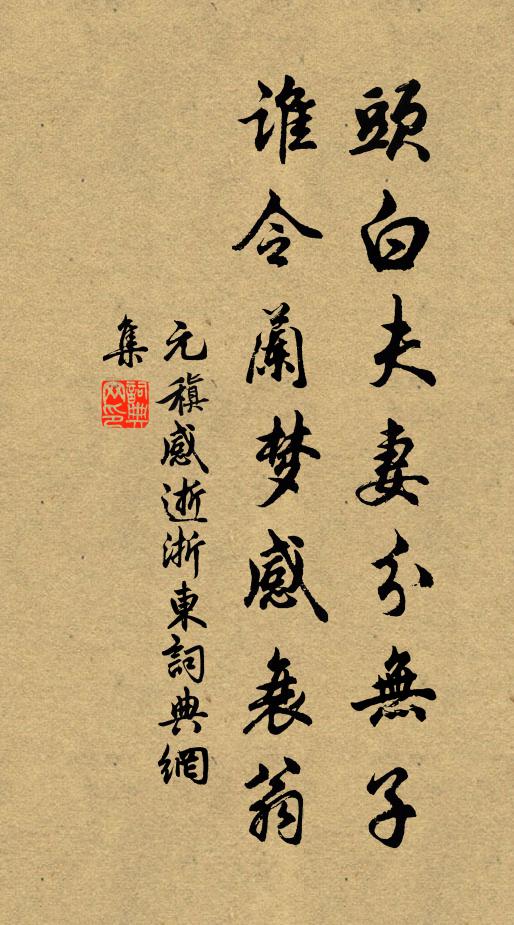 頭白夫妻分無子
誰令蘭梦感衰翁
元稹感逝浙東詞典網
集
詞典網印